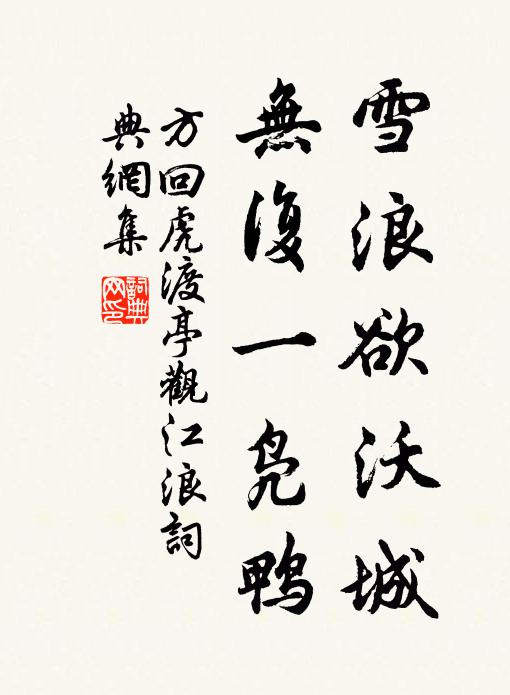 雪浪欲沃城
無復一凫鴨
方回虎渡亭觀江浪詞
典網集
詞典网印